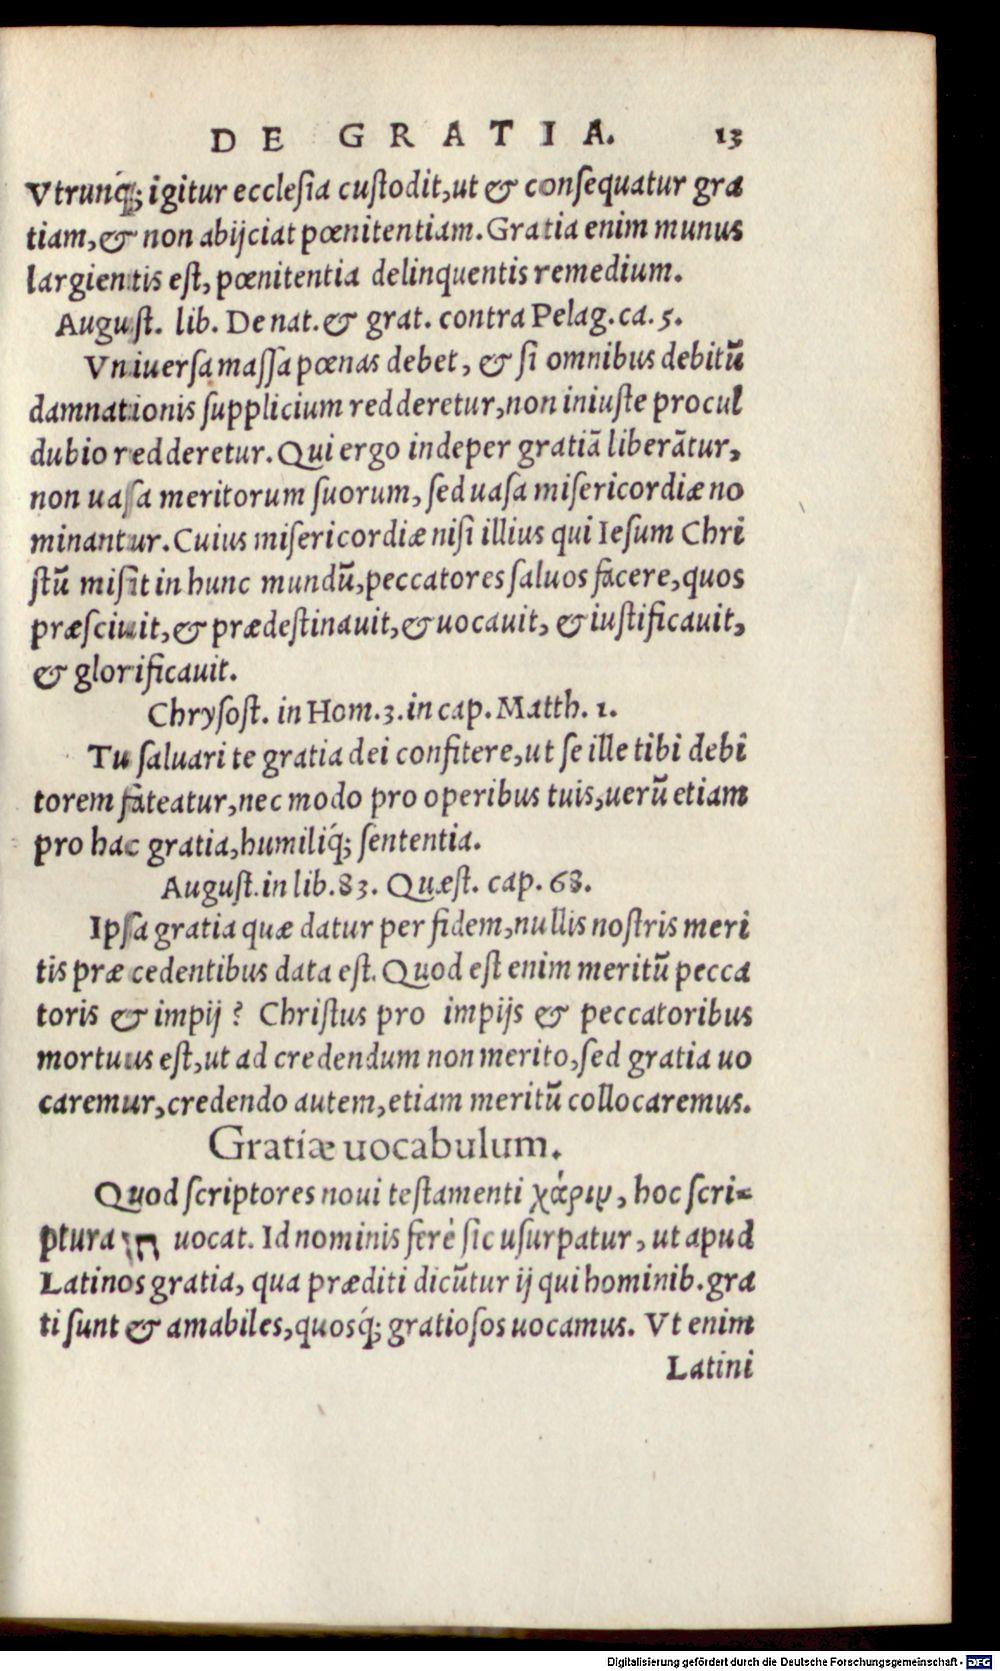 DE GRATIA. 13
Vtrunq́; igitur ecclesia custodit, ut & consequatur gra
tiam, & non abijciat pœnitentiam. Gratia enim munus
largientis est, pœnitentia delinquentis remedium.
August. lib. De nat. & grat. contra Pelag. ca. 5.
Vniuersa massa pœnas debet, & si omnibus debitū
damnationis supplicium redderetur, non iniuste procul
dubio redderetur. Qui ergo inde per gratiā liberātur,
non uasa meritorum suorum, sed uasa misericordiæ no
minantur. Cuius misericordiæ nisi illius qui Iesum Chri
stū misit in hunc mundū, peccatores saluos facere, quos
præsciuit, & prædestinauit, & uocauit, & iustificauit,
& glorificauit.
Chrysost. in Hom. 3. in cap. Matth. 1.
Tu saluari te gratia dei confitere, ut se ille tibi debi
torem fateatur, nec modo pro operibus tuis, uerū etiam
pro hac gratia, humiliq́; sententia.
August. in lib. 83. Quæst. cap. 68.
Ipsa gratia quæ datur per fidem, nullis nostris meri
tis præcedentibus data est. Quod est enim meritū pecca
toris & impij? Christus pro impijs & peccatoribus
mortuus est, ut ad credendum non merito, sed gratia uo
caremur, credendo autem, etiam meritū collocaremus.
Gratiæ uocabulum.
Quod scriptores noui testamenti χάριν, hoc scri-
ptura חן uocat. Id nominis ferè sic usurpatur, ut apud
Latinos gratia, qua præditi dicūtur ij qui hominib. gra
ti sunt & amabiles, quosq́; gratiosos uocamus. Vt enim
Latini
Digitalisierung gefördert durch die Deutsche Forschungsgemeinschaft - DFG